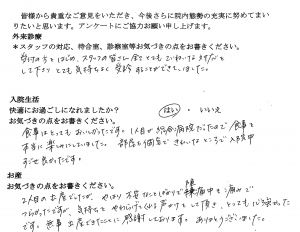 皆様から貴重なご意見をいただき、今後さらに院内態勢の充実に努めてまい
りたいと思います。アンケートにご協力お願い申し上げます。
外来診療
＊スタッフの対応、待合室、診察室等お気づきの点をお書きください。
受付の方をはじめ、スタッフの皆さん全てとてもていねいな対応を
して下さり とても気持ちよく受診することができていました。
入院生活
快適にお過ごしになれましたか？ はい ・ いいえ
お気づきの点をお書きください。
食事はとってもおいしかったです。1人目が総合病院だったので食事を
本当に楽しみにしていました。部屋も個室できれいなところで入院中
すごせ良かったです。
お産
お気づきの点をお書きください。
2人目の出産でしたが、やはり不安なことばかりで陣痛中も痛みで
つらかったですが、気持ちをやわらげてくれる声かけをして頂き、とっても心強かった
です。無事出産できたことに感謝しております。ありがとうございました。